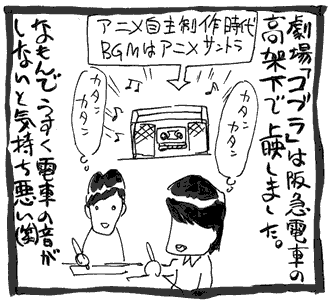 劇場「コブラ」は阪急電車の
高架下で上映しました。
アニメ自主制作時代
BGMはアニメサントラ
カタン
カタン
カタン
カタン
なもんでうすく電車の音が
しないと気持ち悪い(笑)